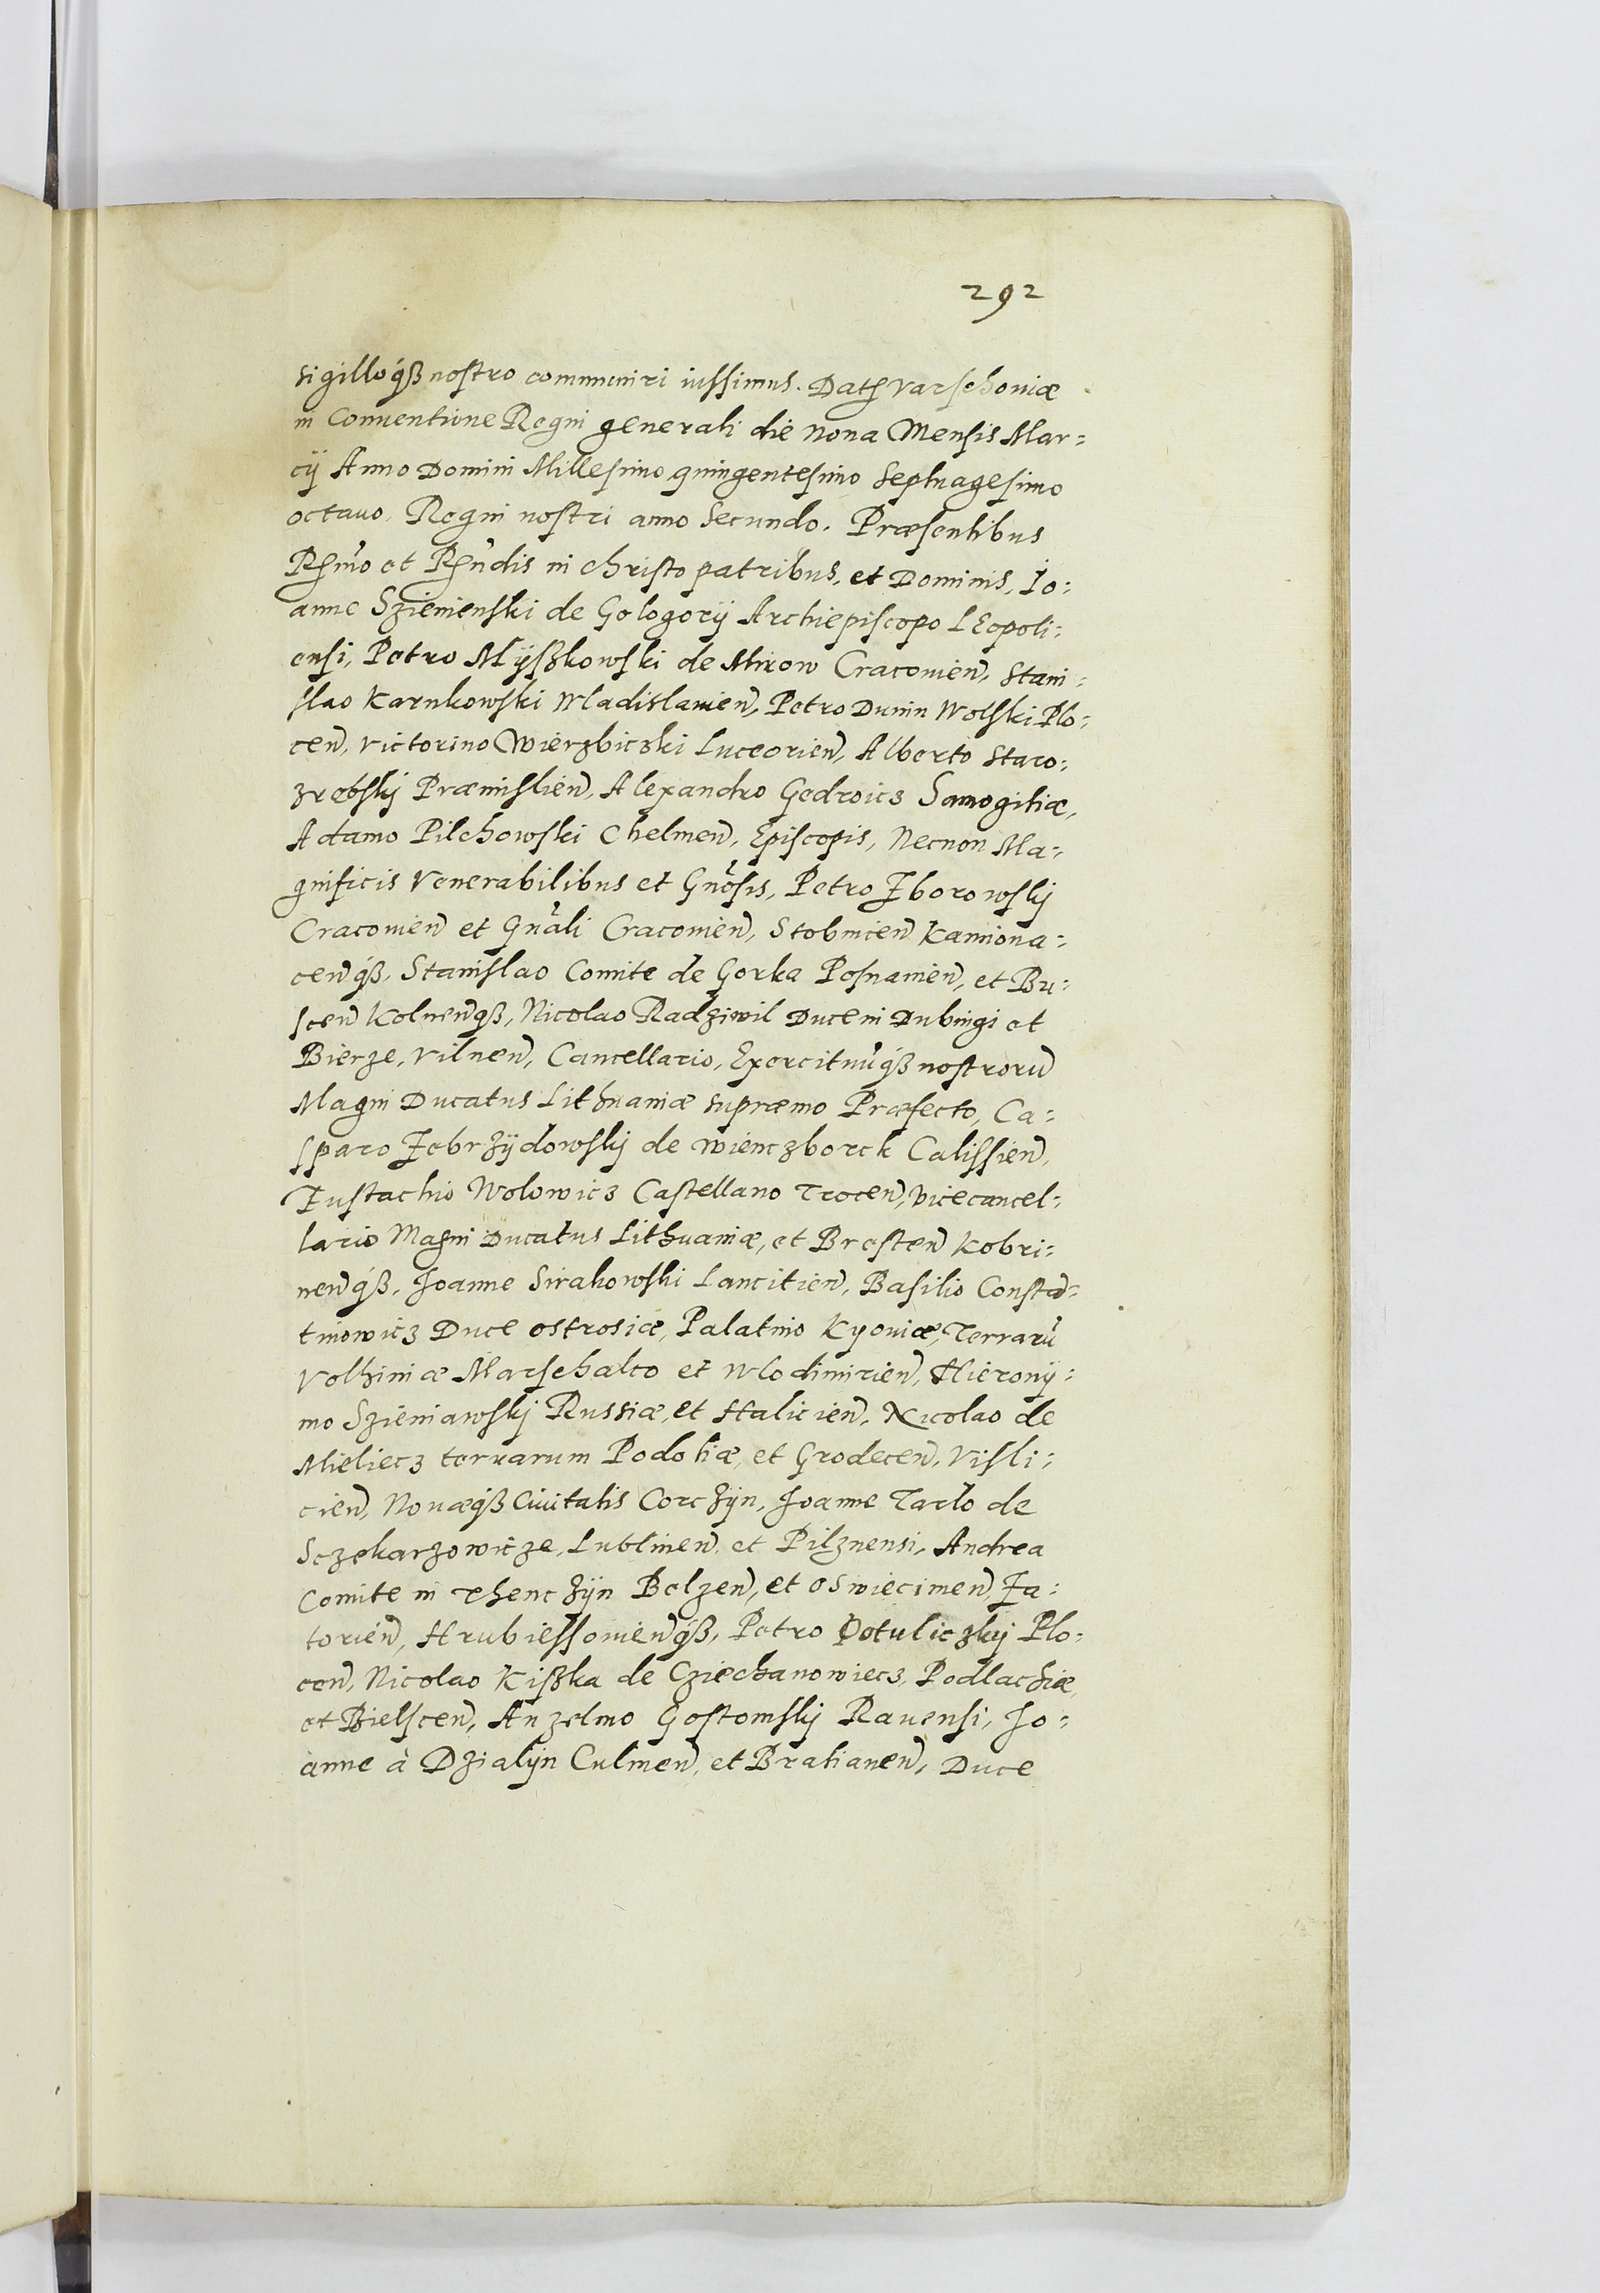 292
sigilloq́ꝫ nostro communiri iussimus. Datꝫ Varschoviæ
in Conventione Regni generali die nona Mensis Mar=
cÿ Anno Domini Millesimo quingentesimo septuagesimo
octavo, Regni nostri anno secundo. Præsentibus
Rꝫmo et Rꝫndis in christo patribus, et Dominis, Io=
anne Szienienski de Gologorÿ Archiepiscopo LEopoli=
ensi, Petro Mÿszkowski de Mirow Cracovien̄, Stani=
slao Karnkowski Wladislavien̄, Petro Dunin Wolski Plo=
cen̄, Victorino Wierzbiczki Luceorien̄, Alberto Staro=
zrebskj Præmislien̄, Alexandro Gedroicz Samogitiæ,
Adamo Pilchowski Chelmen̄, Episcopis, Necnon Ma=
gnificis Venerabilibus et Gn̄osis, Petro Zborowskj
Cracovien̄ et Gn̄ali Cracovien̄, Stobnicen̄ Kamiona=
cen̄q́ꝫ, Stanislao Comite de Gorka Posnanien̄, et Bu=
scen̄ Kolnen̄q́ꝫ, Nicolao Radziwil Duce in Dubingi et
Bierze, Vilnen̄, Cancellario, Exercituūq́ꝫ nostrorū
Magni Ducatus Lithuaniæ supræmo Præfecto, Ca=
sparo Zebrzÿdowskj de Wienczborck Calissien̄,
Eustachio Wolowicz Castellano Trocen̄, Vicecancel=
lario Magni Ducatus Lithuaniæ, et Bresten̄ Kobri=
nen̄q́ꝫ, Joanne Sirakowski Lancitien̄, Basilio Constā=
tinowicz Duce ostrosiæ, Palatino Kyoviæ, Terrarū
Volhiniæ Marschalco et Wlodimirien̄, Hieronÿ=
mo Szieniawskj Russiæ, et Halicien̄, Nicolao de
Mieliecz terrarum Podoliæ, et Grodecen̄, Visli=
cien̄, Novæq́ꝫ Civitatis Corczÿn, Joanne Tarlo de
Sczekarzowicze, Lublinen̄, et Pilznensi, Andrea
Comite in Thenczÿn Belzen̄, et oswiecimen̄, Za=
torien̄, Hrubiessovien̄q́ꝫ, Petro Potuliczkj Plo=
cen̄, Nicolao Kiszka de Cziechanowiecz, Podlachiæ,
et Bielscen̄, Anzelmo Gostomskj Ravensi, Jo=
anne à Dzialÿn Culmen̄, et Bratianen̄, Duce